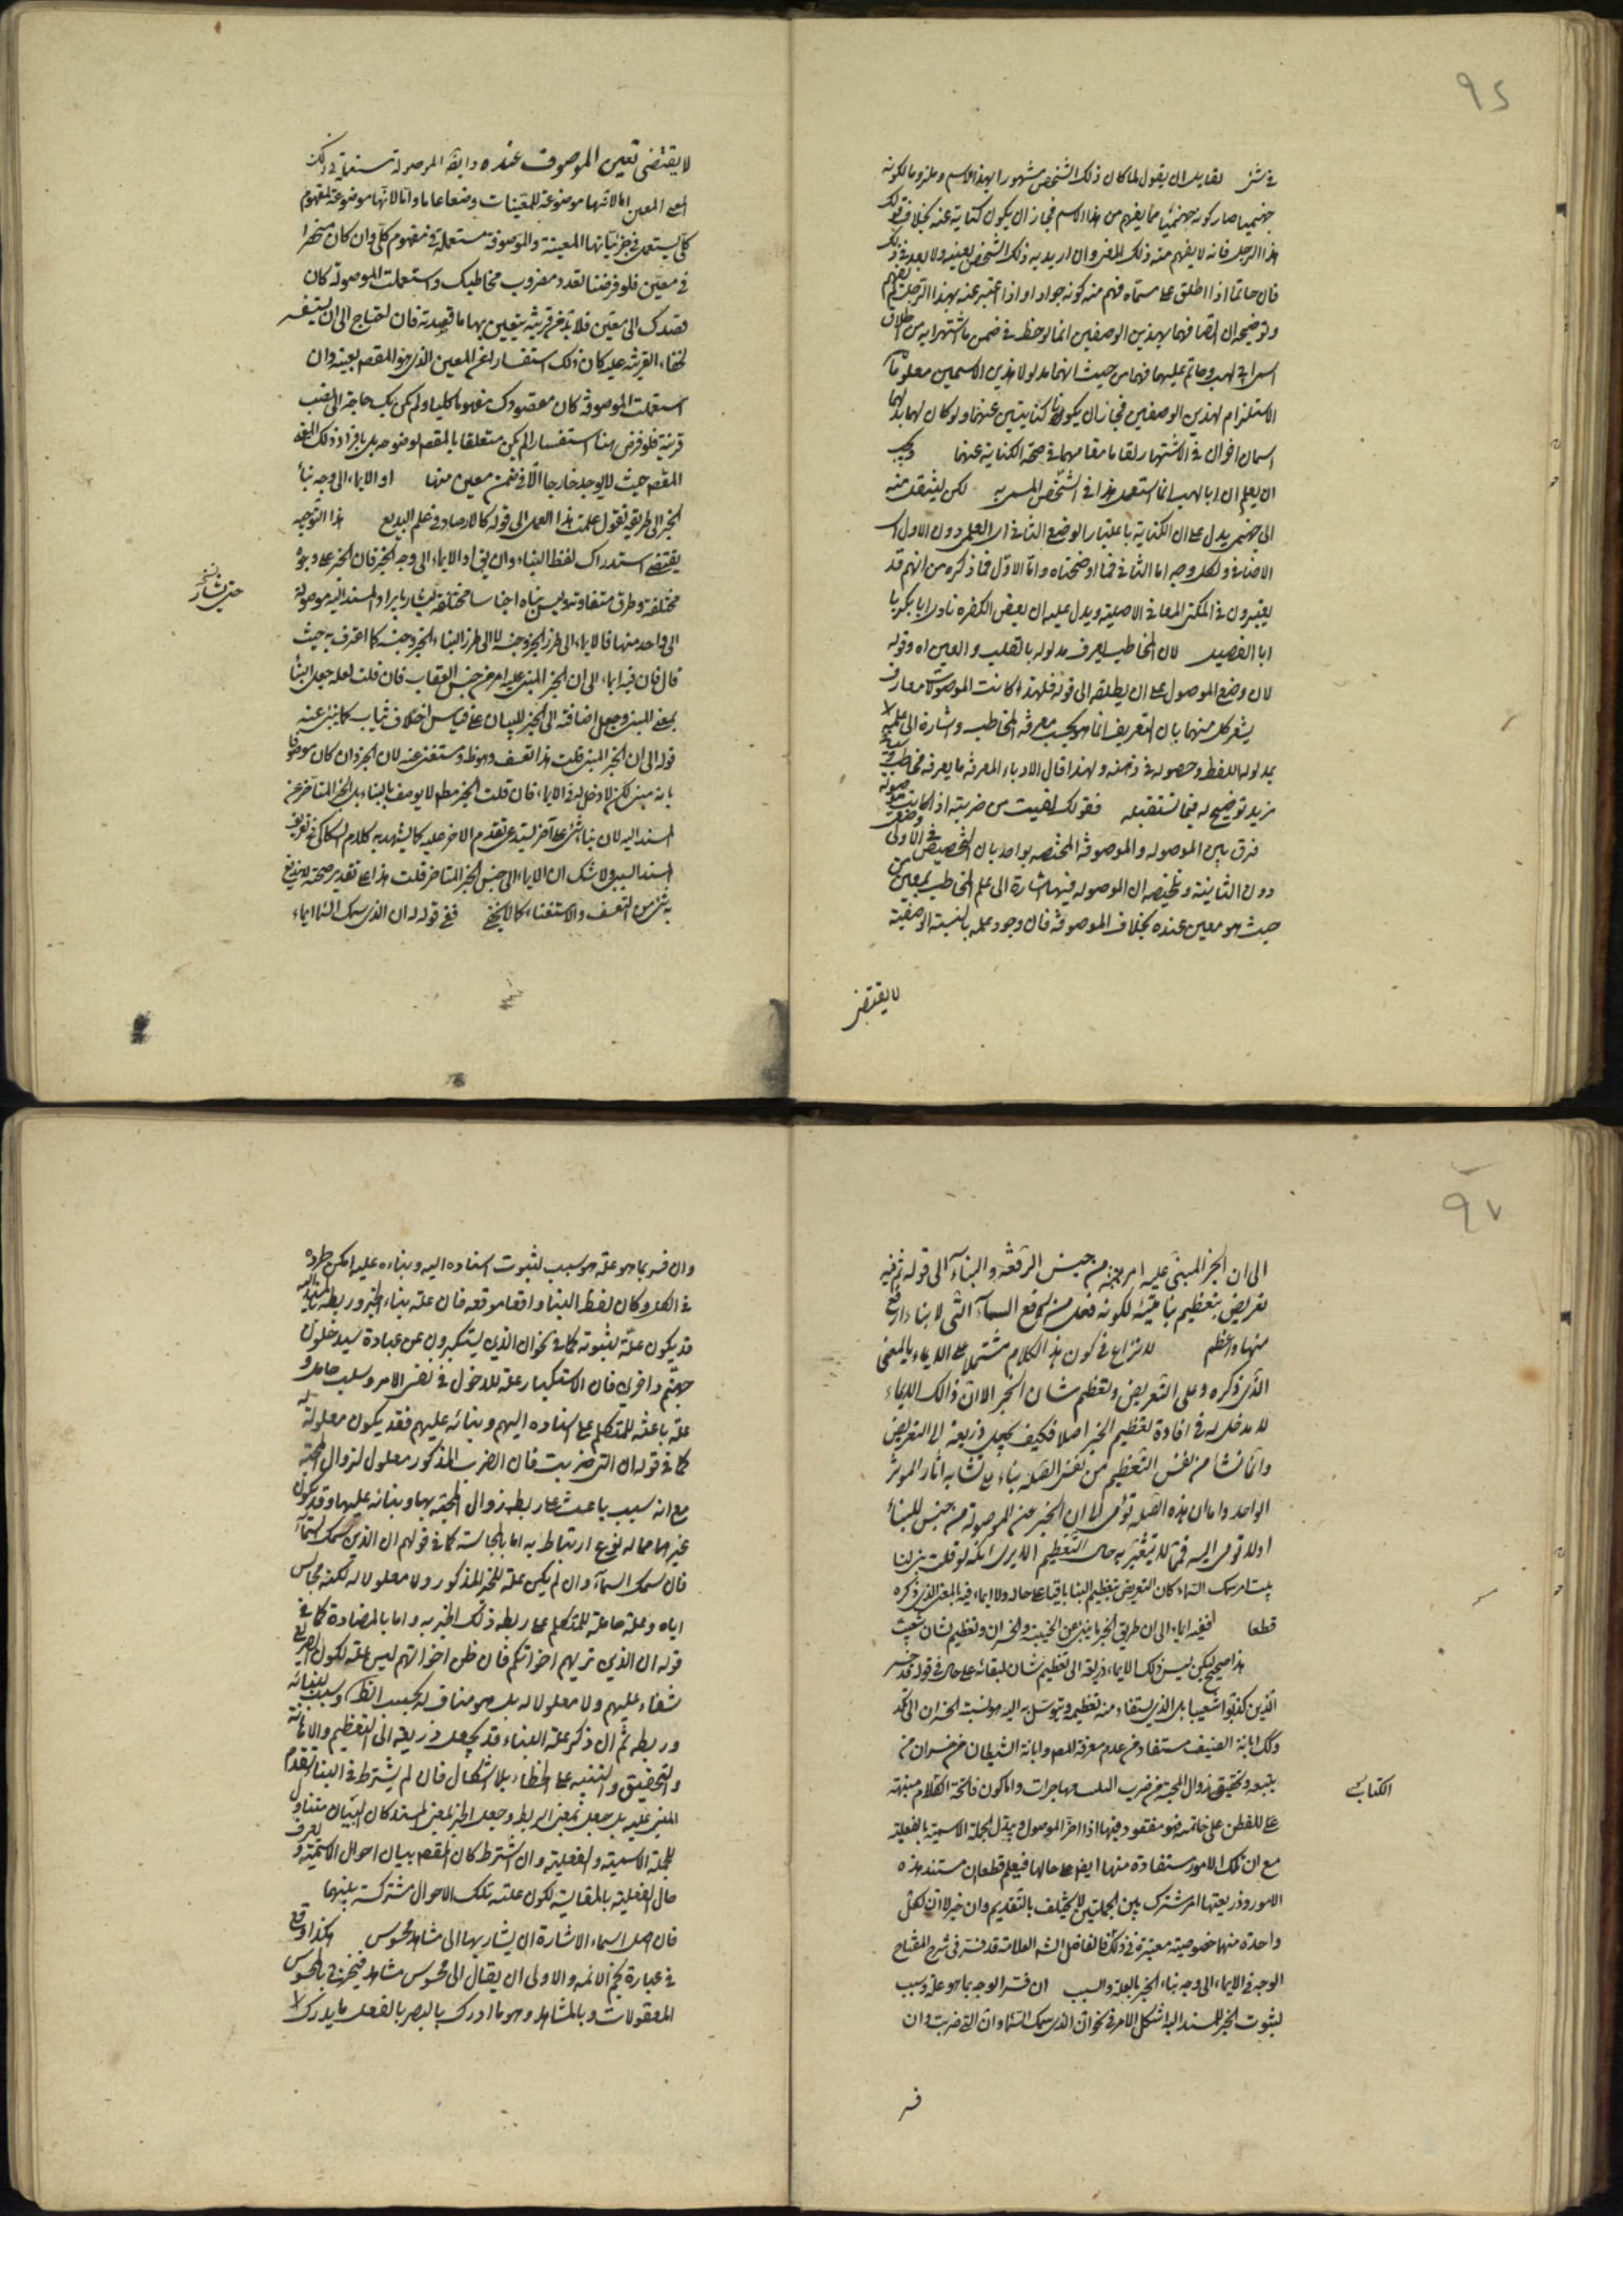 ٩٥
في شئ لقايل ان يقول لما كان ذلك الشخص مشهورا بهذا الاسم وملزوما لكونه
جهنميا صار كونه جهنميا مما يفهم من هذا الاسم فجاز ان يكون كناية عنه بخلاف قولك
هذا الرجل فانه لا يفهم منه ذلك المعنى وان اريد به ذلك الشخص بعينه ولا بعد في ذلك
فان حاتما اذا اطلق على مسماه فهم منه كونه جوادا واذا عبر عنه بهذا الرجل لم يفهم
وتوضيحه ان اتصافهما بهذين الوصفين انما لوحظ في ضمن ما اشتهرا به من اطلاق
اسم ابي لهب وحاتم عليهما فهما من حيث انهما مدلولا هذين الاسمين معلوما
الاستلزام لهذين الوصفين فجاز ان يكونا كنايتين عنهما ولو كان لهما
اسمان اخران في الاشتهار لقاما مقامهما في صحة الكناية عنهما ويجب
ان يعلم ان ابا لهب انما استعمل هنا في الشخص المسمى به لكن لينتقل منه
الى جهنمي يدل على ان الكناية باعتبار الوضع الثاني اي العلمي دون الاول اي
الاضافي ولكل وجه اما الثاني فما اوضحناه واما الاول فما ذكره من انهم قد
يعتبرون في الكنى المعاني الاصلية ويدل عليه ان بعض الكفرة نادى ابا بكر يا
ابا الفصيل لان المخاطب يعرف مدلوله بالقلب والعين اه وقوله
لان وضع الموصول على ان يطلقه الى قوله فلهذا كانت الموصولات معارف
يشعر كل منهما بان التعريف انما هو بحسب معرفة المخاطب واشارة الى علمه
بمدلول اللفظ وحصوله في ذهنه ولهذا قال الادباء المعرفة ما يعرفه مخاطبك
مزيد توضيح له فيما تستقبله فقولك لقيت من ضربته اذا كانت موصولة
فرق بين الموصولة والموصوفة المختصة بواحد بان التخصيص في الاولى وضعي
دون الثانية وتلخيصه ان الموصولة فيها اشارة الى علم المخاطب بمعين من
حيث هو معين عنده بخلاف الموصوفة فان وجود علمه بالنسبة الوصفية
لا يقتضي
لا يقتضى تعين الموصوف عنده وايضا الموصولة مستعملة في ذلك
المعنى المعين اما لانها موضوعة للمعينات وضعا عاما واما لانها موضوعة لمفهوم
كلي يستعمل في جزئياتها المعينة والموصوفة مستعملة في مفهوم كلي وان كان منحصرا
في معين فلو فرضنا تعدد مضروب مخاطبك واستعملت الموصولة كان
قصدك الى معين فلا بد من قرينة يتعين بها ما قصدته فان احتاج الى ان يستفسر
لخفاء القرينة عليه كان ذلك استفسارا عن المعين الذي هو المقصد بعينه وان
استعملت الموصوفة كان مقصودك مفهوما كليا ولم يكن بك حاجة الى نصب
قرينة فلو فرض هنا استفسار لم يكن متعلقا بالمقصد لوضوحه بل بافراد ذلك المعنى
المقصد حيث لا يوجد خارجا الا في ضمن معين منها او الايماء الى وجه بناء
الخبر الى طريقه تقول عملت هذا العمل الى قوله كالارصاد في علم البديع هذا التوجيه
يقتضي استدراك لفظ البناء وان يق او الايماء الى وجه الخبر فان الخبر على وجوه
مختلفة وطرق متفاوتة وليس بناه اجناسا مختلفة ليشار بايراد المسند اليه موصولة
حتى يشار نسخه
الى واحد منها فالايماء الى طرز الخبر وجنسه لا الى طرز البناء الخبر وجنسه كما اعترف به حيث
قال فان فيه ايماء الى ان الخبر المبنى عليه امر من جنس العقاب فان قلت لعله جعل البنا
بمعنى المبني وجعل اضافته الى الخبر للبيان على قياس اخلاق ثياب كما ينبئ عنه
قوله الى ان الخبر المبني قلت هذا تعسف وهو ظ ومستغنى عنه لان الخبر وان كان موصوفا
بانه مبني لكن لا دخل له في الايماء فان قلت الخبر مطلقا لا يوصف بالبناء بل الخبر المتاخر عن
المسند اليه لان بناء شئ على آخر يستدعى تقدم الاخر عليه كما يشهد به كلام السكاكي في تعريف
المسند السببي ولا شك ان الايماء الى جنس الخبر المتاخر قلت هذا على تقدير صحته لا يندفع
به شئ من التعسف والاستغناء كما لا يخفى ففي قوله ان الذي سمك السماء ايماء
٩٧
الى ان الخبر المبني عليه امر من جنس الرفعة والبناء الى قوله ثم فيه
تعريض بتعظيم بناء بيته لكونه فعل من رفع السماء التي لا بناء ارفع
منها واعظم لا نزاع في كون هذا الكلام مشتملا على الايماء بالمعنى
الذي ذكره وعلى التعريض وتعظيم شان الخبر الا ان ذالك الايماء
لا مدخل له في افادة تعظيم الخبر اصلا فكيف يجعل ذريعة الى التعريض
وانما نشا من نفس التعظيم من نفس الصلة بناء على تشابه اثار المؤثر
الواحد واما ان هذه الصلة تؤمى الى ان الخبر عن الموصولة من جنس البناء
اولا تومى اليه فمما لا يتغير به حال التعظيم الا يرى انك لو قلت بنى لنا
بيتا من سمك السماء كان التعريض بتعظيم البنا باقيا على حاله ولا ايماء فيه بالمعنى الذي ذكره
قطعا ففيه ايماء الى ان طريق الخبر ما ينبئ عن الخيبة والخسران وتعظيم لشان شعيب
هذا صحيح لكن ليس ذلك الايماء ذريعة الى تعظيم شان لبقائه على حاله في قوله قد خسر
الذين كذبوا شعيبا بل الذي يستفاد منه تعظيمه ويتوسل به اليه هو نسبة الخسران الى المكذبين
وكك اهانة الضعيف مستفاد من عدم معرفة المصه واهانة الشيطان من خسران من
يتبعه وتحقيق زوال المحبة من ضرب البيت مهاجرات واما كون فاتحة الكلام منبهة
الكتاب نسخه
على للفطن على خاتمته فهو مفقود فيها اذا اخر الموصول ويبدل الجملة الاسمية بالفعلية
مع ان تلك الامور مستفادة منها ايضا على حالها فيعلم قطعا ان مستند هذه
الامور وذريعتها امر مشترك بين الجملتين لا يختلف بالتقديم والتاخير الا ان لكل
واحدة منها خصوصية معتبرة في ذلك فالفاضل الشه العلامة قد فسر في شرح المفتاح
الوجه في الايماء الى وجه بناء الخبر بالعلة والسبب ان فسر الوجه بما هو علة وسبب
لثبوت الخبر للمسند اليه اشكل الامر في نحو ان الذي سمك السماء وان التي ضربت وان
فسر
وان فسر بما هو علة هو سبب لثبوت اسناده اليه وبناءه عليه امكن طرده
في الكل وكان لفظ البناء واقعا موقعه فان علة بناء الخبر وربطه بالمسند اليه
قد يكون علة لثبوته كما في نحو ان الذين يستكبرون عن عبادة سيدخلون
جهنم داخرين فان الاستكبار علة للدخول في نفس الامر وسبب حامل و
علة باعثة للمتكلم على اسناده اليهم وبنائه عليهم فقد يكون معلولة له
كما في قوله ان التي ضربت فان الضرب المذكور معلول لزوال المحبة
مع انه سبب باعث على ربط زوال المحبة بها وبنائه عليها وقد يكون
غيرهما مما له نوع ارتباط به اما بالمجانسة كما في قولهم ان الذي سمك السماء
فان سمك السماء وان لم يكن علة للخبر المذكور ولا معلولا له لكنه مجانس
اياه وعلة حاملة للمتكلم على ربط ذلك الخبر به واما بالمضادة كما في
قوله ان الذين ترونهم اخوانكم فان ظن اخوانهم ليس علة لكون الصرع
شفاء عليهم ولا معلولا له بل هو مناف له بحسب الظ وسبب لبنائه
وربطه ثم ان ذكر علة البناء قد يجعل ذريعة الى التعظيم والاهانة
والتحقيق والتنبيه على الخطاء بلا اشكال فان لم يشترط في البنا تقدم
المبنى عليه بل جعل بمعنى الربط وجعل الخبر بمعنى المسند كان البيان متناولا
للجملة الاسمية والفعلية وان اشترط كان المقصد بيان احوال الاسمية و
حال الفعلية بالمقايسة لكون علته تلك الاحوال مشتركة بينهما
فان اصل اسماء الاشارة ان يشار بها الى مشاهد محسوس هكذا وقع
في عبارة نجم الائمة والاولى ان يقال الى محسوس مشاهد فيخرج بالمحسوس
المعقولات وبالمشاهد وهو ما ادرك بالبصر بالفعل ما يدرك لا